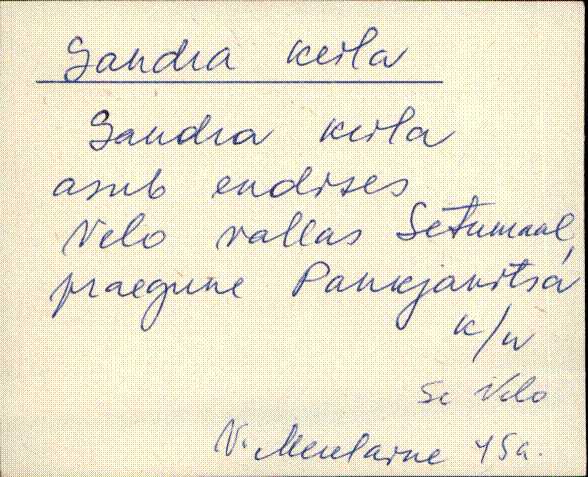 Sandra keila
Sandra keila
asub endises
Velo vallas Setumaal,
praegune Pankjavitsa
k/n
Se Velo
V. Merelaine 45a.